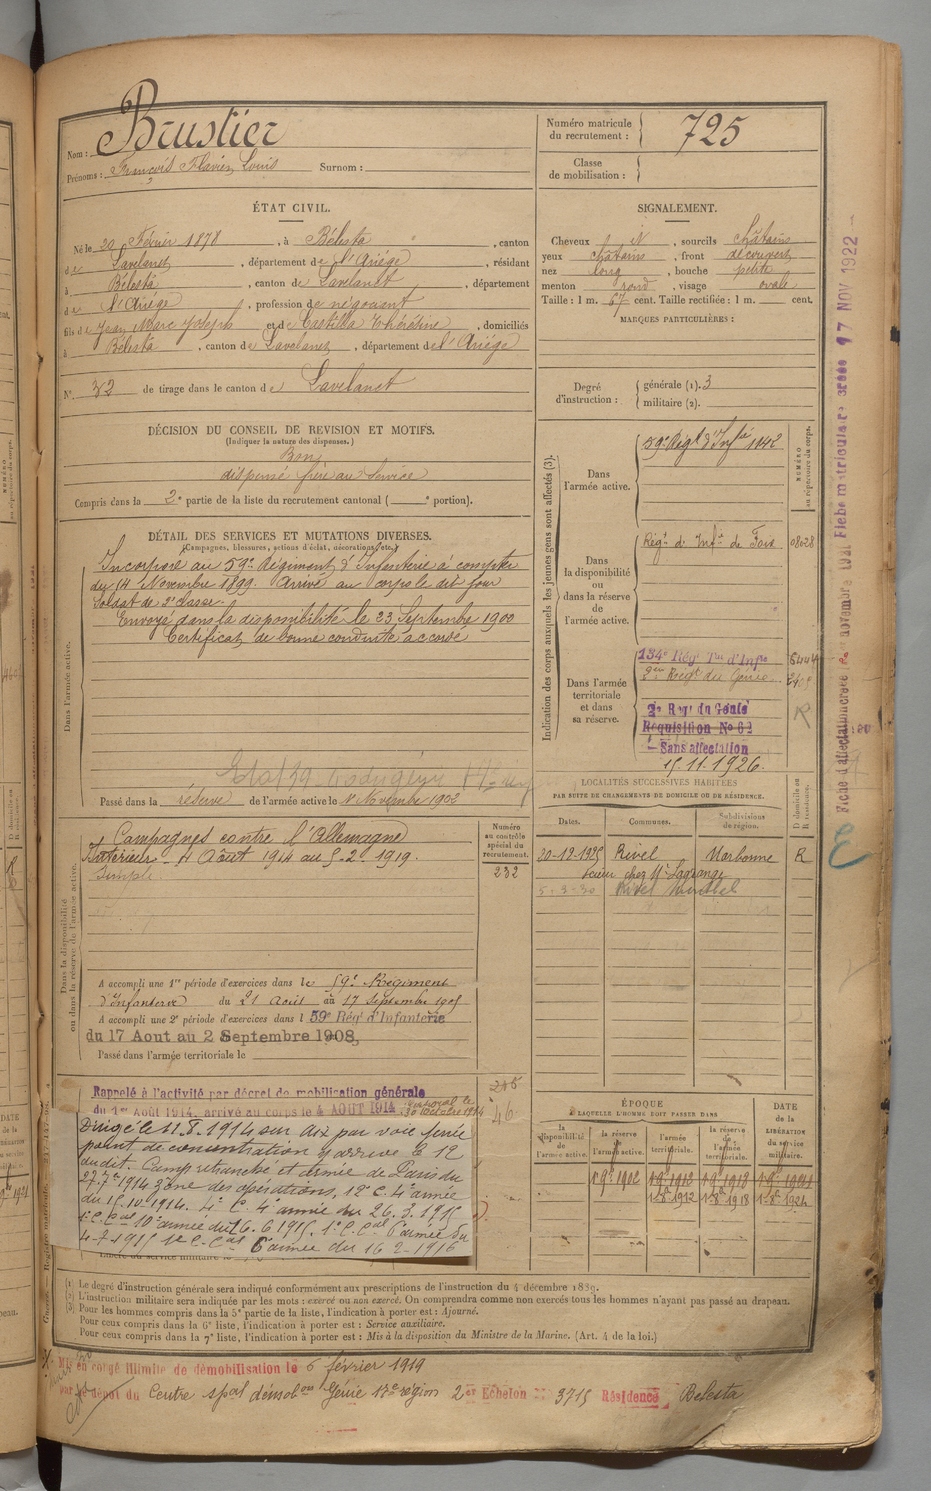 Nom : Brustier
Prénoms : François Flavien Louis Surnom :
Numéro matricule du recrutement : 725
Classe de mobilisation :
ÉTAT CIVIL.
Né le 20 Février 1878, à Bélesta, canton
de Lavelanet, département de l'Ariège, résidant
à Bélesta, canton de Lavelanet, département
de l'Ariège, profession de négociant
fils de Jean Marc Joseph et de Castilla Thérésine, domiciliés
à Bélesta, canton de Lavelanet, département de l'Ariège
N° 32 de tirage dans le canton de Lavelanet
SIGNALEMENT.
Cheveux , sourcils châtains
yeux châtains, front découvert
nez long, bouche petite
menton rond, visage ovale
Taille : 1 m. 67 cent. Taille rectifiée : 1 m. cent.
MARQUES PARTICULIÈRES :
Degré d'instruction : générale (1). 3
militaire (2).
DÉCISION DU CONSEIL DE REVISION ET MOTIFS.
(Indiquer la nature des dispenses.)
Bon
dispensé frère au service
Compris dans la 2e partie de la liste du recrutement cantonal ( e portion).
DÉTAIL DES SERVICES ET MUTATIONS DIVERSES.
(Campagnes, blessures, actions d'éclat, décorations, etc.)
Dans l'armée active.
Incorporé au 59e Régiment d'Infanterie à compter
du 14 Novembre 1899. Arrivé au corps le dit jour
Soldat de 2e classe.
Envoyé dans la disponibilité le 23 Septembre 1900
Certificat de bonne conduite accordé
Passé dans la réserve de l'armée active le 1 Novembre 1902
Indication des corps auxquels les jeunes gens sont affectés (3).
NUMÉRO au répertoire du corps.
Dans l'armée active.
59e Régt d'Infie 1042
Dans la disponibilité ou dans la réserve de l'armée active.
Régt d'Infie de Foix 08028
Dans l'armée territoriale et dans sa réserve.
134e Rég Tal d'Infie
2e Régt du Génie
2e Reg du Génie
Requisition No 62
Sans affectation
15.11.1926.
R
Dans la disponibilité ou dans la réserve de l'armée active.
Campagnes contre l'Allemagne
Intérieur 4 Août 1914 au 5-2-1919.
simple
Numéro au contrôle spécial du recrutement.
232
A accompli une 1re période d'exercices dans le 59e Régiment
d'Infanterie du 21 Août au 17 Septembre 1905
A accompli une 2e période d'exercices dans l 59e Rég' d'Infanterie
du 17 Aout au 2 Septembre 1908,
Passé dans l'armée territoriale le
LOCALITÉS SUCCESSIVES HABITÉES
PAR SUITE DE CHANGEMENTS DE DOMICILE OU DE RÉSIDENCE.
Dates. Communes. Subdivisions de région. D domicile ou R résidence.
20-12-1925 Rivel Narbonne R
chez Mr Lagrange
5-3-30 Rivel
Rappelé à l'activité par décret de mobilisation générale
du 1er Août 1914, arrivé au corps le 4 AOUT 1914
Dirigé le 11.8.1914 sur Aix par voie ferrée
point de concentration y arrive le 12
dudit. Camp retranché et armée de Paris du
1914 zone des opérations, 12e C. 4e armée
du 15.10.1914. 4e C. 4e armée du 26.3.1915
1e C. Cal 10e armée du 16.6.1915. 1e C. Cal 6e armée du
4-7-1915 1e C. Cal 6e armée du 16 2-1916
46
ÉPOQUE
À LAQUELLE L'HOMME DOIT PASSER DANS
DATE de la LIBÉRATION du service militaire.
la disponibilité de l'armée active. la réserve de l'armée active. l'armée territoriale. la réserve de l'armée territoriale.
1 9bre 1902 1 9bre 1912 1 9bre 1918 1 9bre 1924
1 8bre 1912 1 8bre 1918 1 8bre 1924
(1) Le degré d'instruction générale sera indiqué conformément aux prescriptions de l'instruction du 4 décembre 1889.
(2) L'instruction militaire sera indiquée par les mots : exercé ou non exercé. On comprendra comme non exercés tous les hommes n'ayant pas passé au drapeau.
(3) Pour les hommes compris dans la 5e partie de la liste, l'indication à porter est : Ajourné.
Pour ceux compris dans la 6e liste, l'indication à porter est : Service auxiliaire.
Pour ceux compris dans la 7e liste, l'indication à porter est : Mis à la disposition du Ministre de la Marine. (Art. 4 de la loi.)
Mis en congé illimité de démobilisation le 6 février 1919
par le dépôt du Centre spal démob Génie 17e région 2e Echelon No 3715 Résidence Belesta
17 NOV 1922